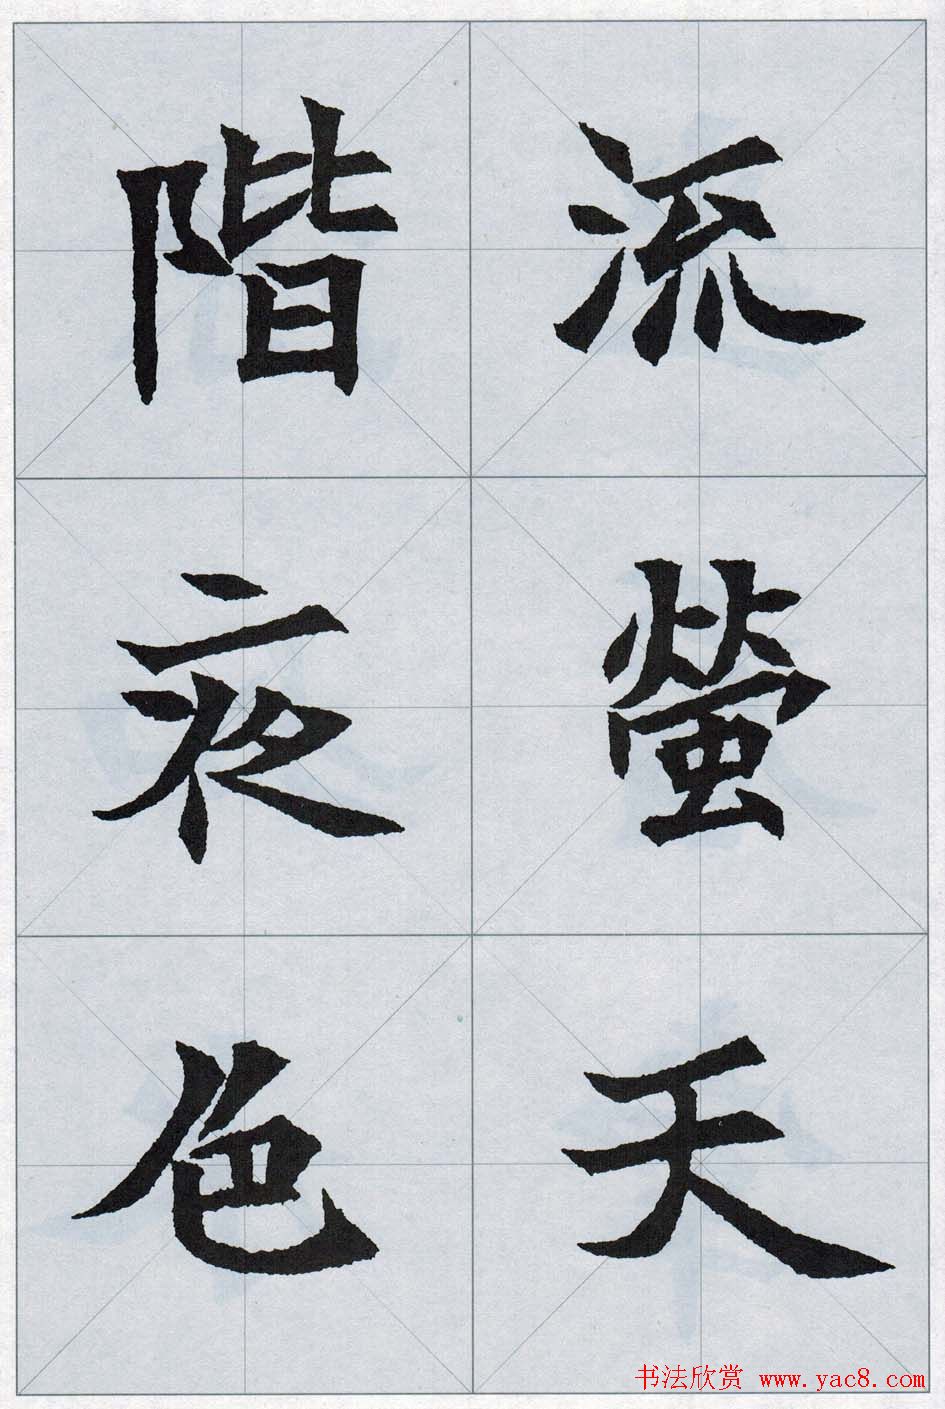 流螢天
階夜色
书法欣赏 www.yac8.com